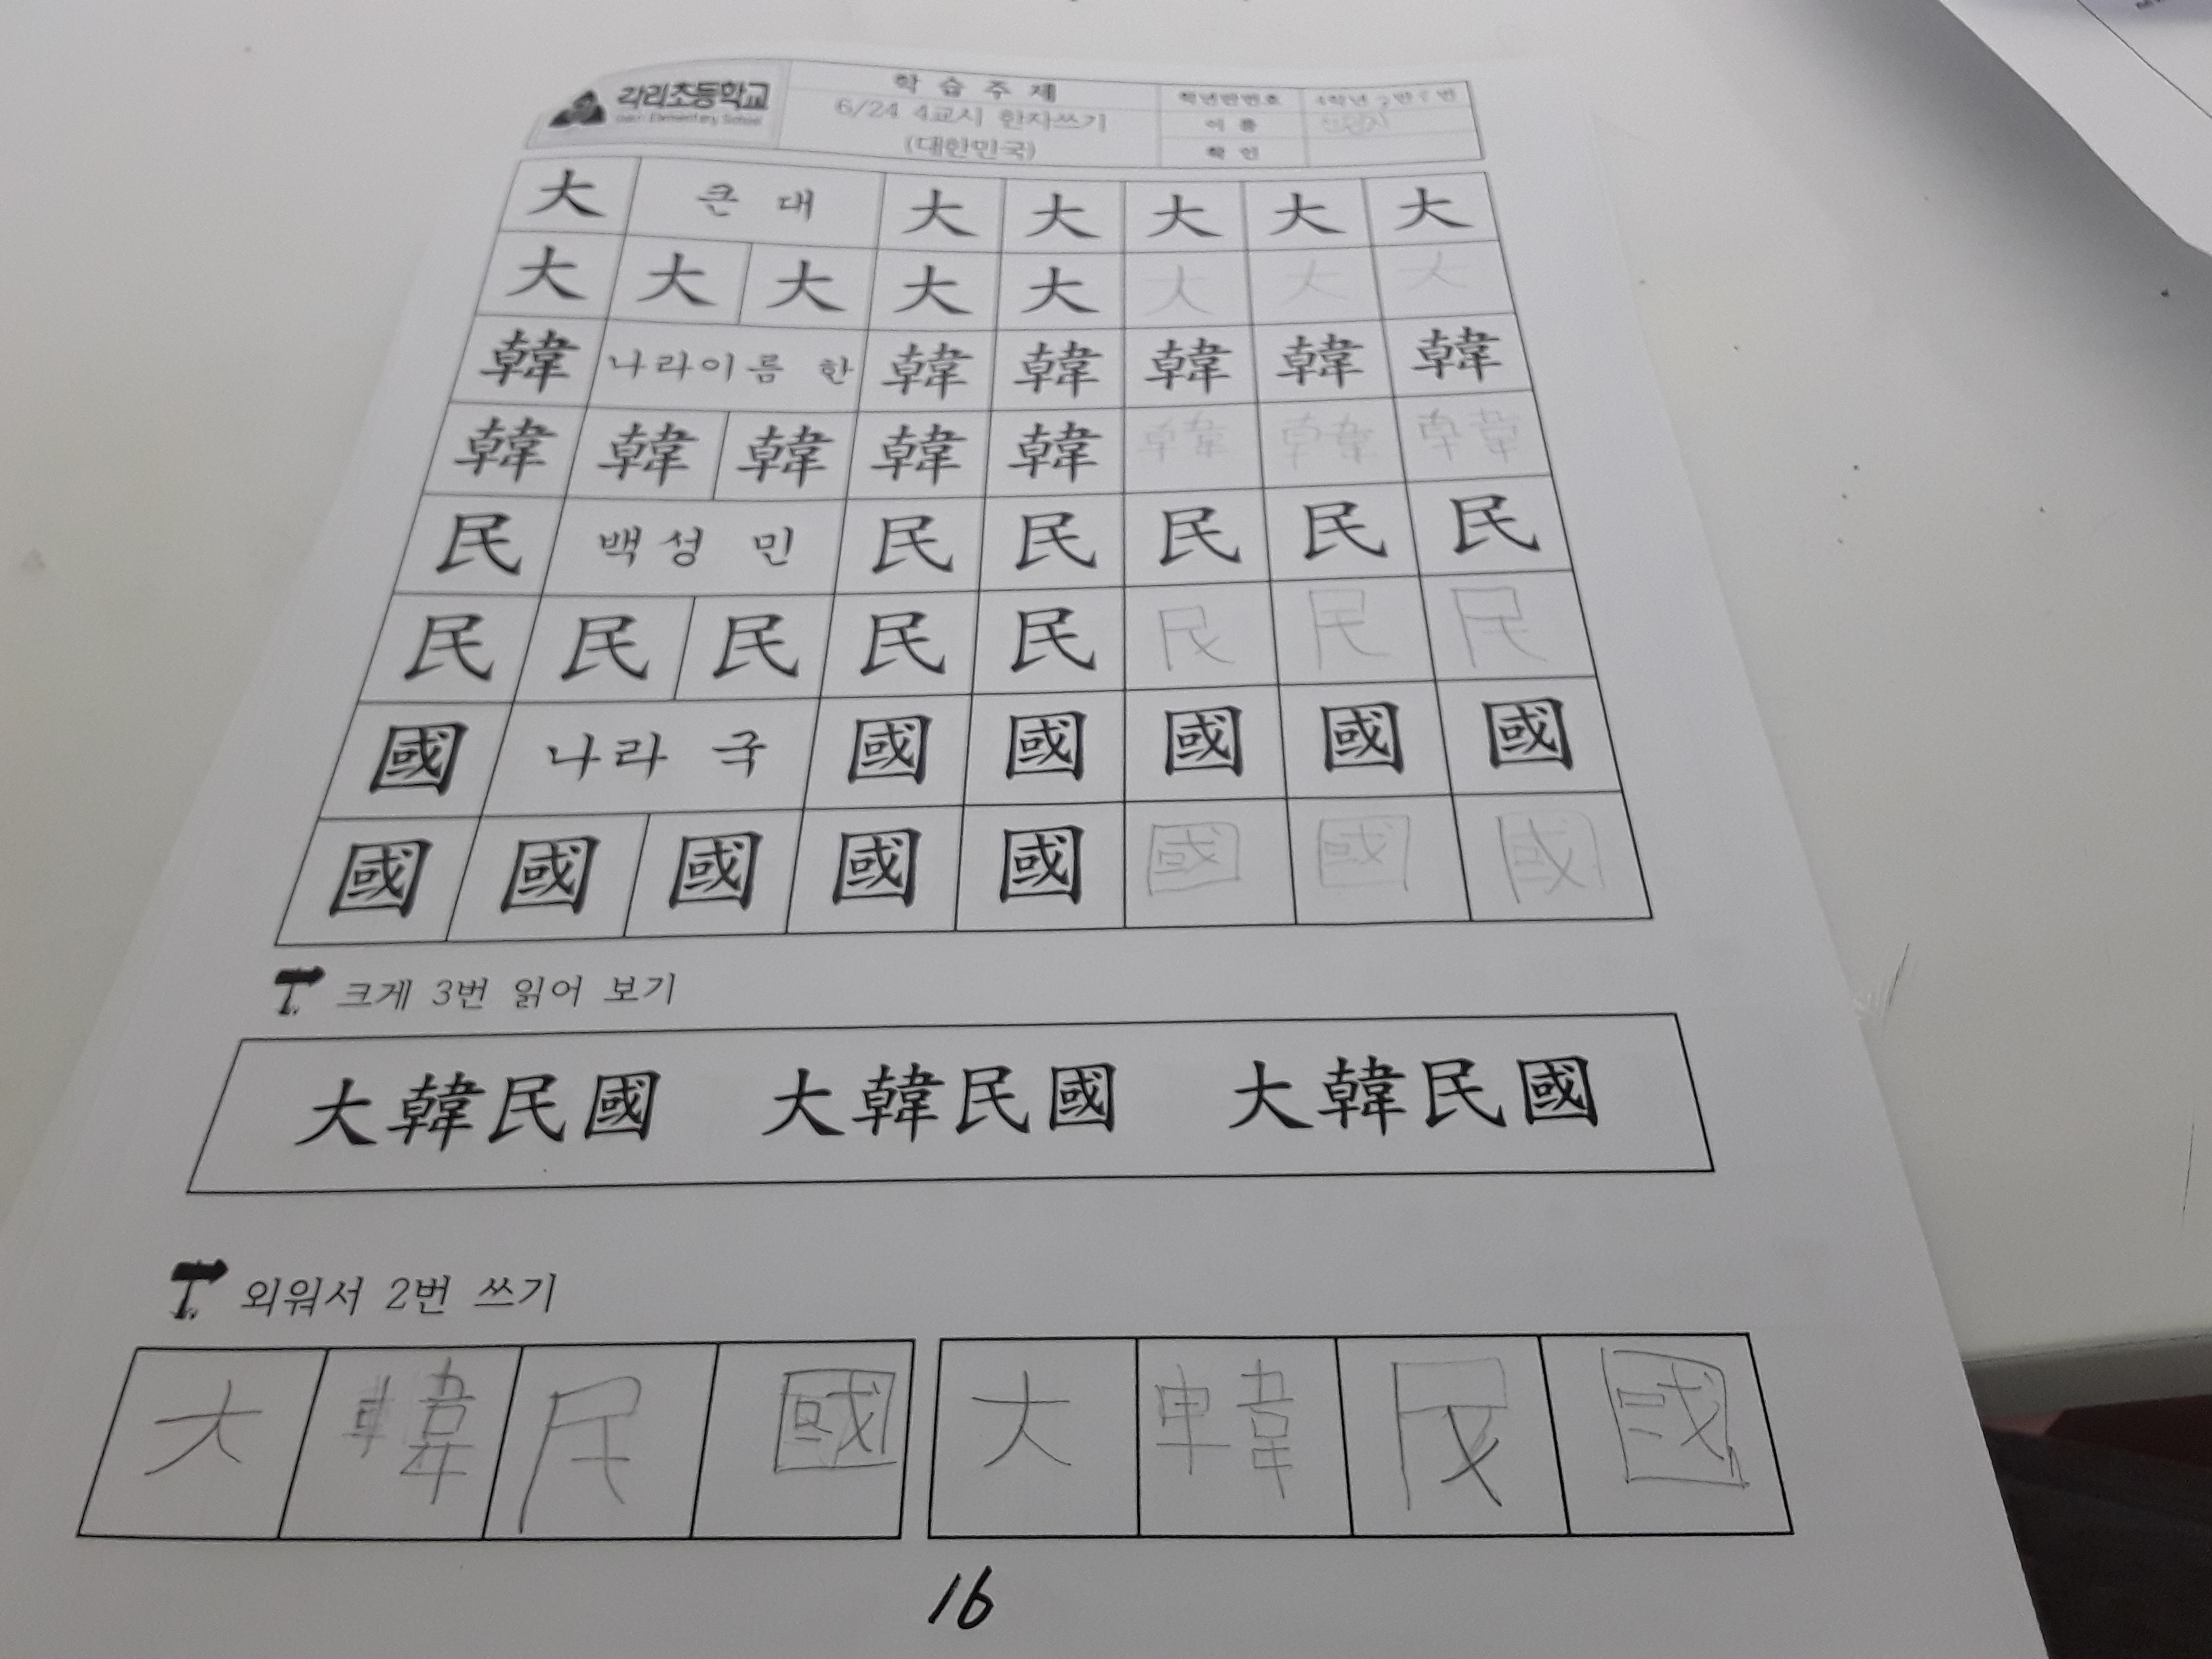 각리초등학교
학 습 주 제
6/24 4교시 한자쓰기
(대한민국)
학년반번호
이 름
확 인
大 큰 대 大 大 大 大 大
大 大 大 大 大 大 大 大
韓 나라이름 한 韓 韓 韓 韓 韓
韓 韓 韓 韓 韓 韓 韓 韓
民 백성 민 民 民 民 民 民
民 民 民 民 民 民 民 民
國 나라 국 國 國 國 國 國
國 國 國 國 國 國 國 國
크게 3번 읽어 보기
大韓民國 大韓民國 大韓民國
외워서 2번 쓰기
大 韓 民 國 大 韓 民 國
16